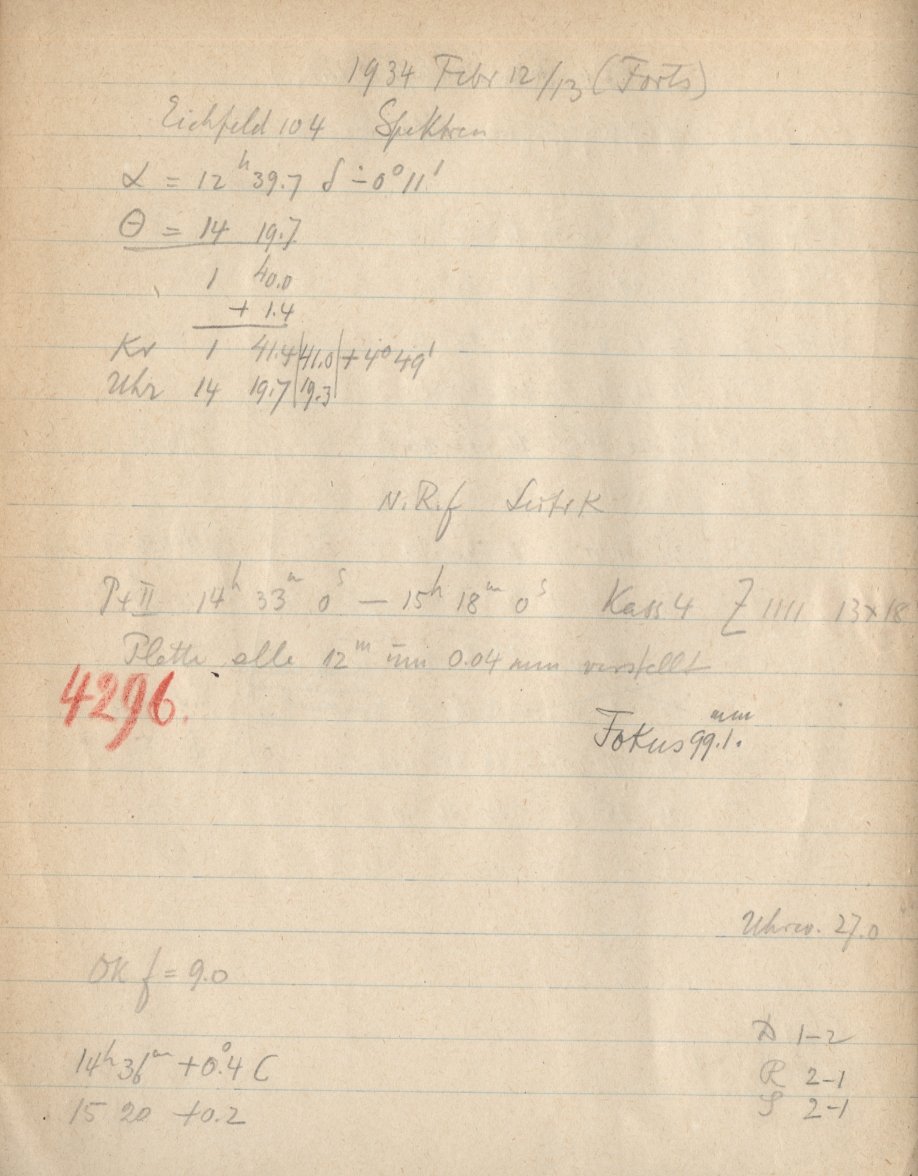 1934 Febr 12/13 (Forts)
Eichfeld 104 Spektren
α = 12ʰ 39.7 δ ÷ 0° 11'
Θ = 14 19.7
1 40.0
+ 1.4
Kr 1 41.4 | 41.0 | + 4° 49'
Uhr 14 19.7 | 19.3 |
N.R.f
P+II 14ʰ 33ᵐ 0ˢ — 15ʰ 18ᵐ 0ˢ Kass 4 Z 1111 13x18
Platte alle 12ᵐ um 0.04 mm verstellt
4296.
Fokus 99.1 mm.
Uhrw. 27.0
OK f = 9.0
14ʰ 36ᵐ +0.°4 C
15 20 +0.2
D 1-2
R 2-1
S 2-1